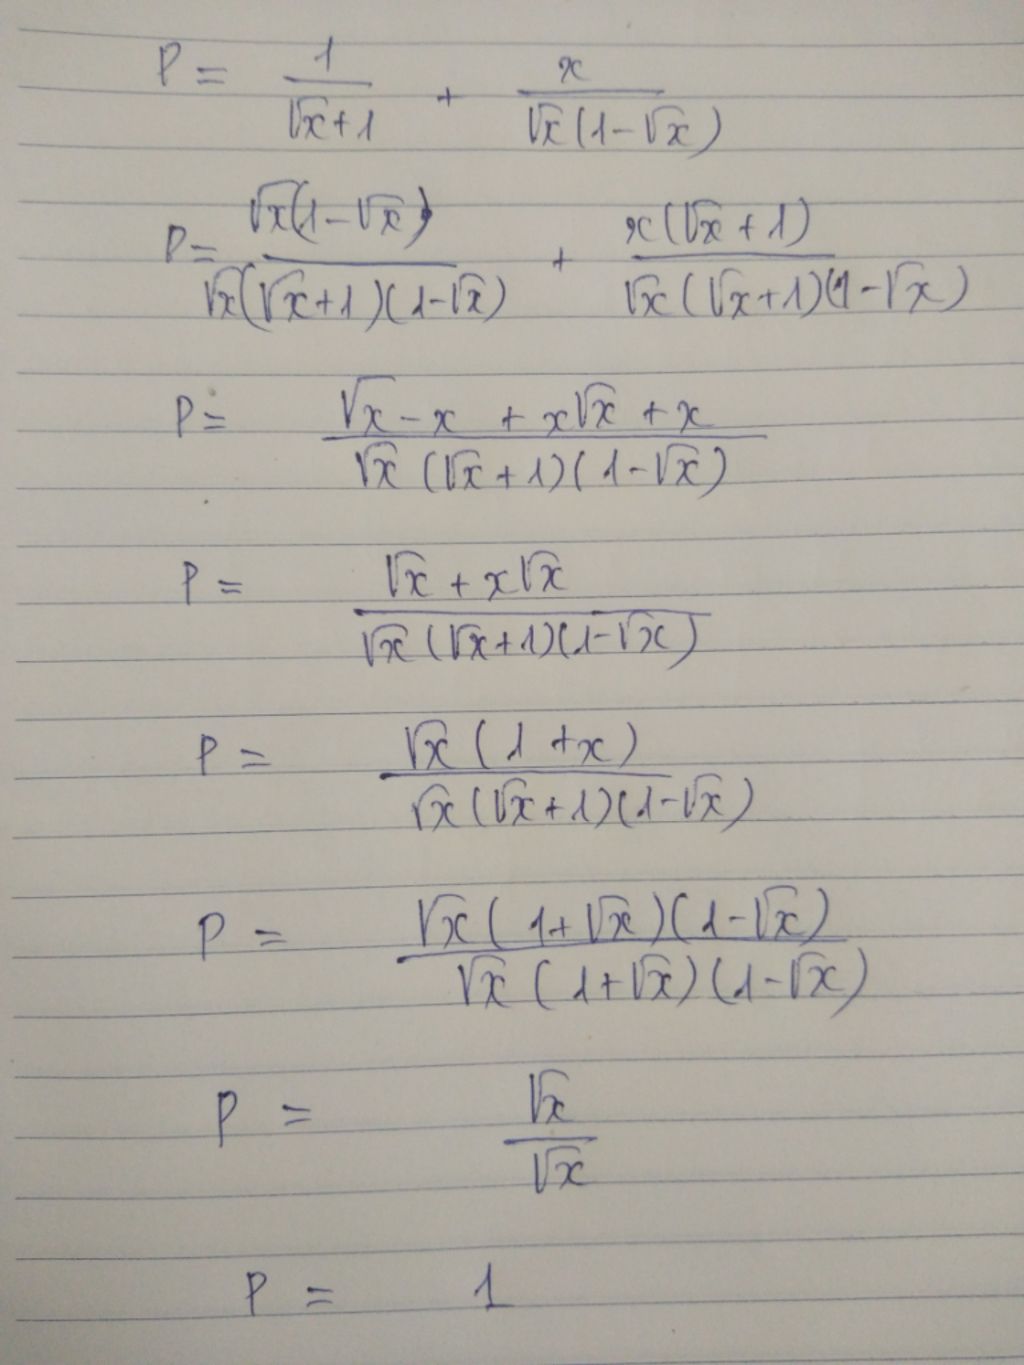 P = 1/(√x+1) + x/(√x(1-√x))
P = √x(1-√x)/(√x(√x+1)(1-√x)) + x(√x+1)/(√x(√x+1)(1-√x))
P = (√x - x + x√x + x)/(√x(√x+1)(1-√x))
P = (√x + x√x)/(√x(√x+1)(1-√x))
P = √x(1+x)/(√x(√x+1)(1-√x))
P = √x(1+√x)(1-√x)/(√x(1+√x)(1-√x))
P = √x/√x
P = 1